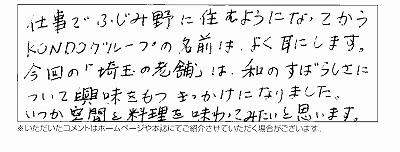 仕事でふじみ野に住むようになってから
KONDOグループの名前は、よく耳にします。
今回の「埼玉の老舗」は、和のすばらしさに
ついて興味をもつきっかけになりました。
いつか空間と料理を味わってみたいと思います。
※いただいたコメントはホームページや本誌にてご紹介させていただく場合がございます。